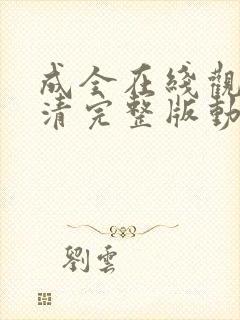 成全在綫觀
清完整版動
劉雲